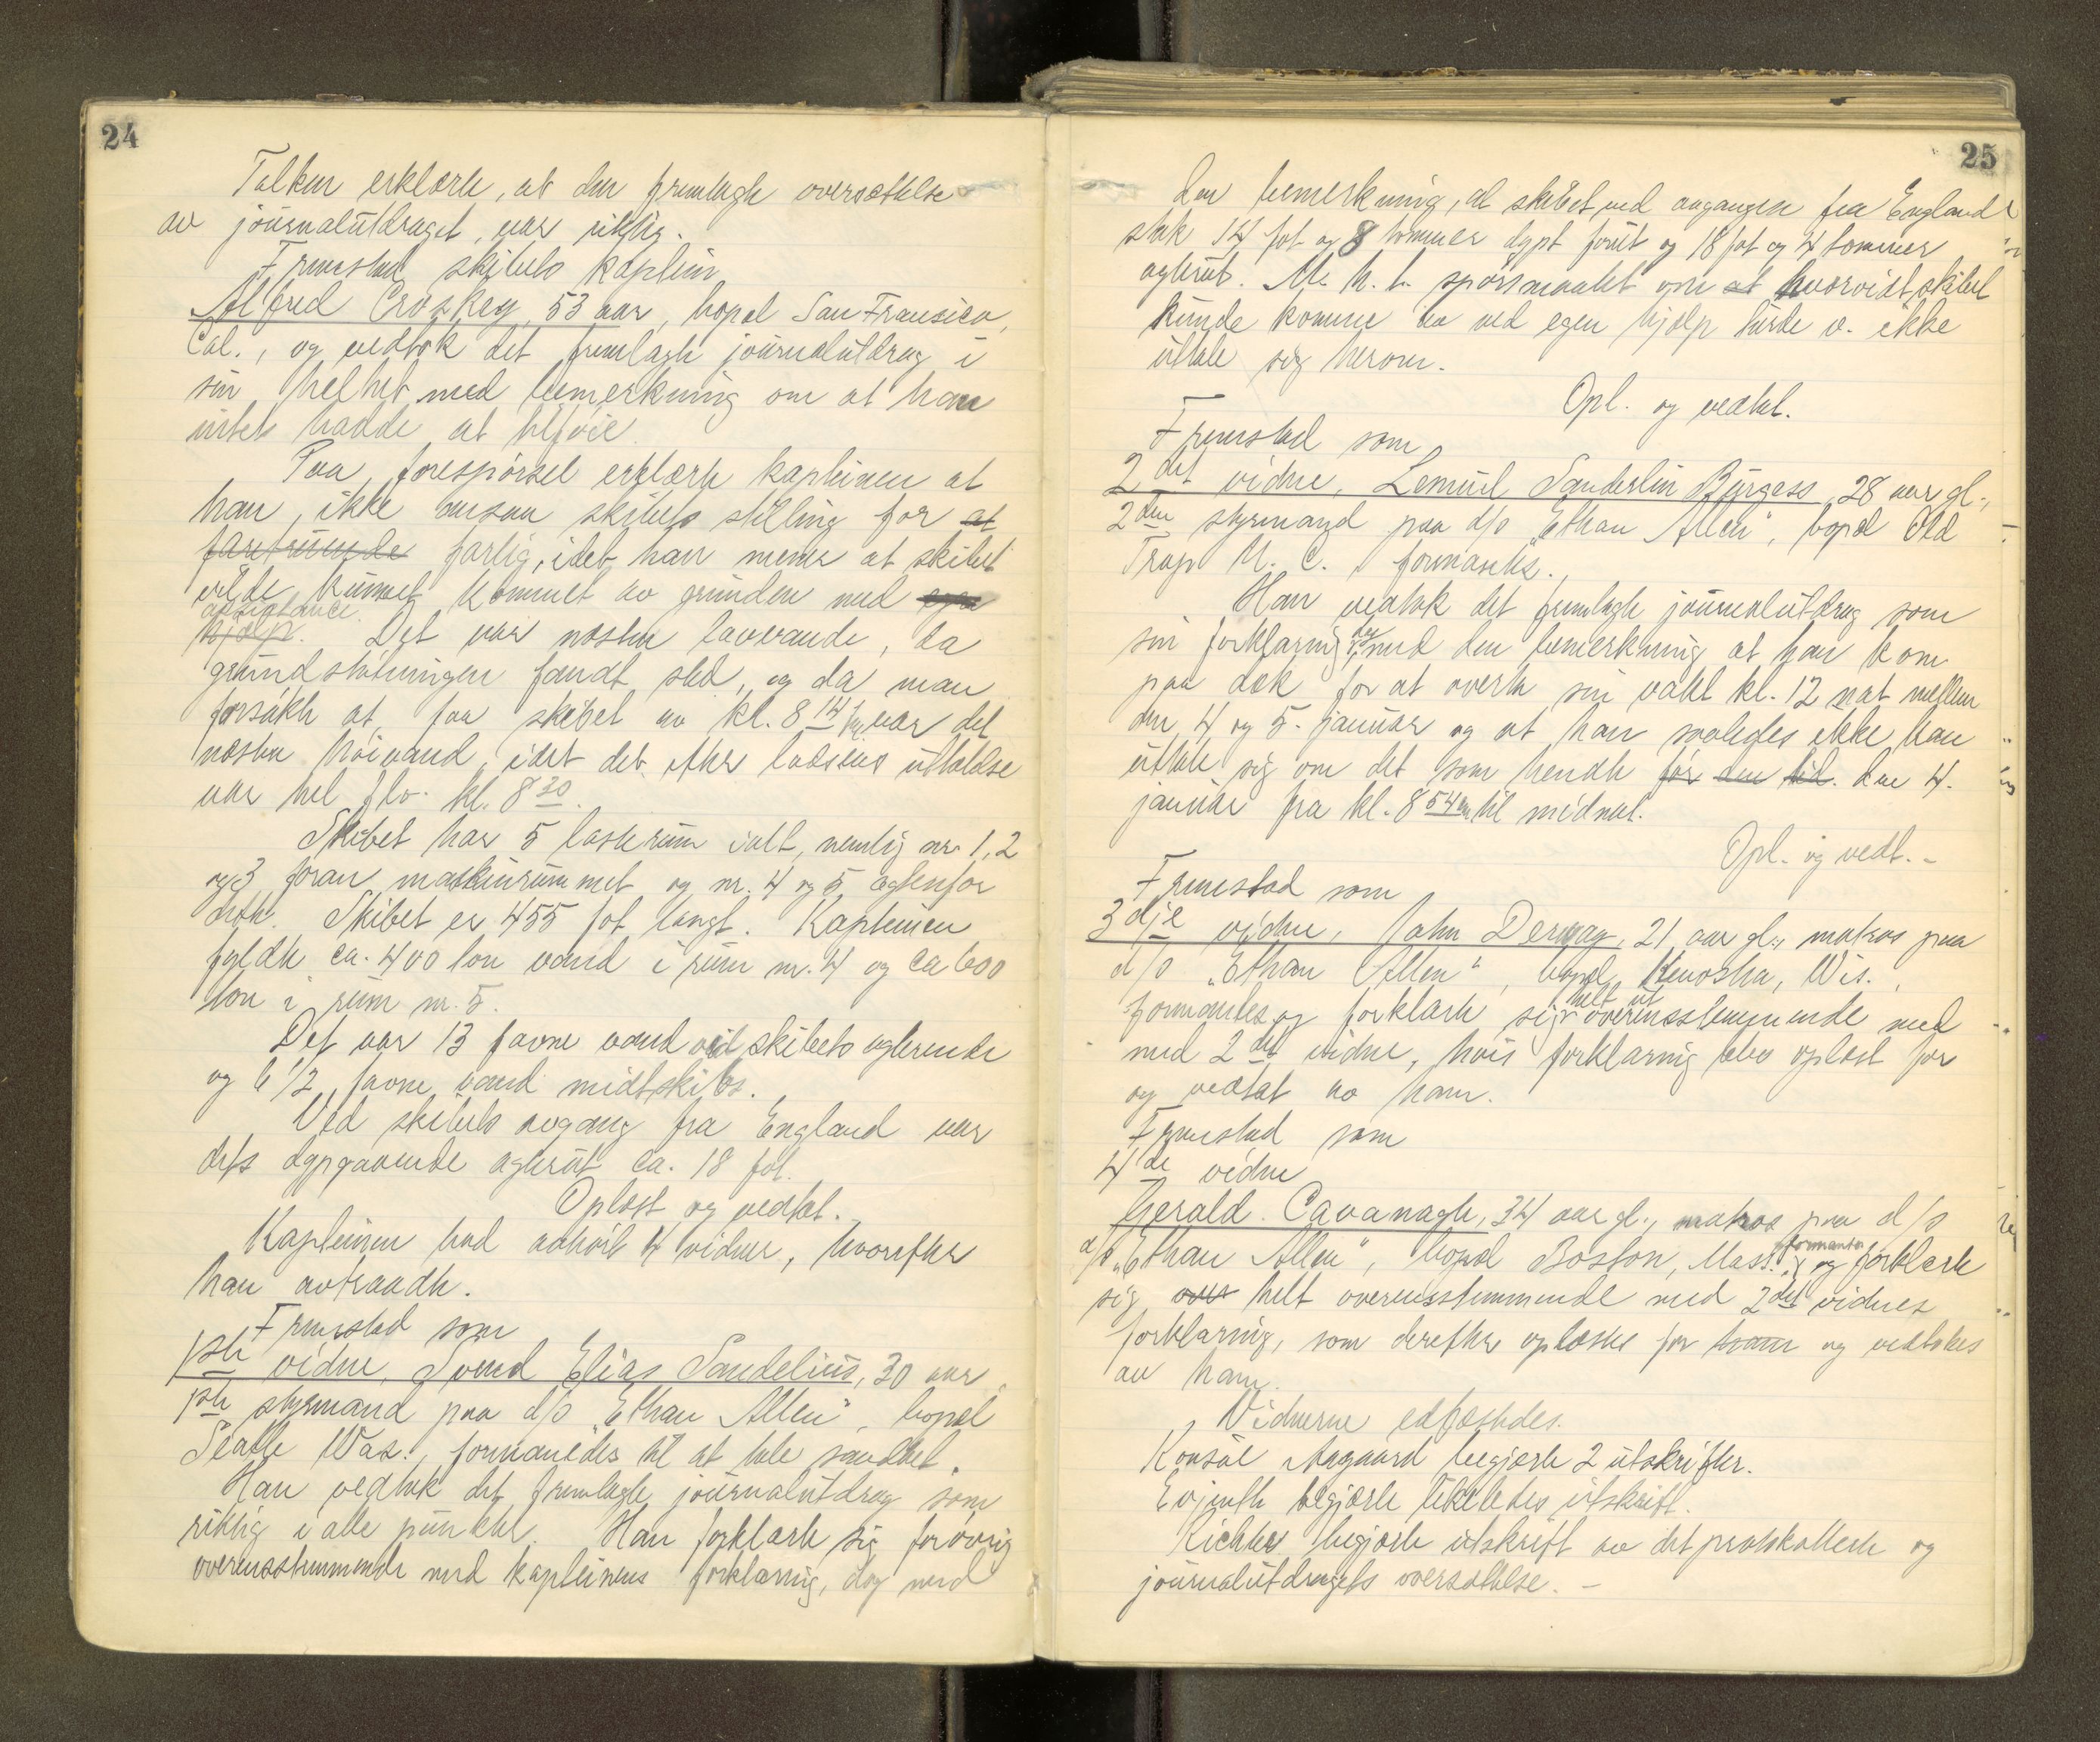 24
Tolken erklærte, at den fremlagte oversættelse
av journalutdraget var riktig.
Fremstod skibets kaptein
Alfred Croskey, 53 aar, bopæl San Fransico,
Cal., og vedtok det fremlagte journalutdrag i
sin helhet med bemerkning om at han
intet hadde at tilføie.
Paa forespørsel erklærte kapteinen at
han ikke ansaa skibets stilling for at
faretruende farlig, idet han mener at skibet
vilde kunnet kommet av grunden med egen
assistance
hjælp. Det var næsten lavvande, da
grundstøtningen fandt sted, og da man
forsøkte at faa skibet av kl. 8 14 fm var det
næsten høivand, idet det efter lodsens uttalelse
var hel flo kl. 8 30.
Skibet har 5 lasterum ialt, nemlig nr. 1, 2
og 3 foran maskinrummet og nr. 4 og 5 agtenfor
dette. Skibet er 455 fot langt. Kapteinen
fyldte ca. 400 ton vand i rum nr. 4 og ca 600
ton i rum nr. 5.
Det var 13 favne vand ved skibets agterende
og 6 1/2 favne vand midtskibs.
Ved skibets avgang fra England var
dets dypgaaende agterut ca. 18 fot.
Oplæst og vedtat.
Kapteinen bad avhørt 4 vidner, hvorefter
han avtraadte.
Fremstod som
1ste vidne, Svend Elias Sandelius, 30 aar,
1ste styrmand paa d/s "Ethan Allen", bopæl
Seatle Was., formanedes til at tale sandhet.
Han vedtok det fremlagte journalutdrag som
riktig i alle punkter. Han forklarte sig forøvrig
overensstemmende med kapteinens forklaring, dog med
25
den bemerkning, at skibet ved avgangen fra England
stak 14 fot og 8 tommer dypt forut og 18 fot og 4 tommer
agterut. M. h. t. spørsmaalet om at hvorvidt skibet
kunde komme av ved egen hjælp turde v. ikke
uttale sig herom.
Opl. og vedtat.
Fremstod som
2det vidne, Lemuel Sanderlin Burgess, 28 aar gl.,
2den styrmand paa d/s "Ethan Allen", bopæl Old
Trap N. C., formantes.
Han vedtok det fremlagte journalutdrag som
sin forklaring dog med den bemerkning at han kom
paa dæk for at overta sin vakt kl. 12 nat mellem
den 4 og 5. januar og at han saaledes ikke kan
uttale sig om det som hendte før den tid. den 4.
januar fra kl. 8 54 em til midnat.
Opl. og vedt. -
Fremstod som
3dje vidne, John Dermay, 21 aar gl., matros paa
d/s "Ethan Allen", bopæl Kenosha, Wis.,
formantes og forklarte sig helt ut overensstemmende med
med 2det vidne, hvis forklaring blev oplæst for
og vedtat av ham.
Fremstod som
4de vidne
Gerald Cavanagh, 34 aar gl., matros paa d/s
d/s "Ethan Allen", bopæl Boston, Mass., formantes og forklarte
sig over helt overensstemmende med 2det vidnes
forklaring, som derefter oplæstes for ham og vedtokes
av ham.
Vidnerne edfæstedes.
Konsul Aagaard begjærte 2 utskrifter.
Evjenth begjærte likeledes utskrift.
Richter begjærte utskrift av det protokollerte og
journalutdragets oversættelse. -